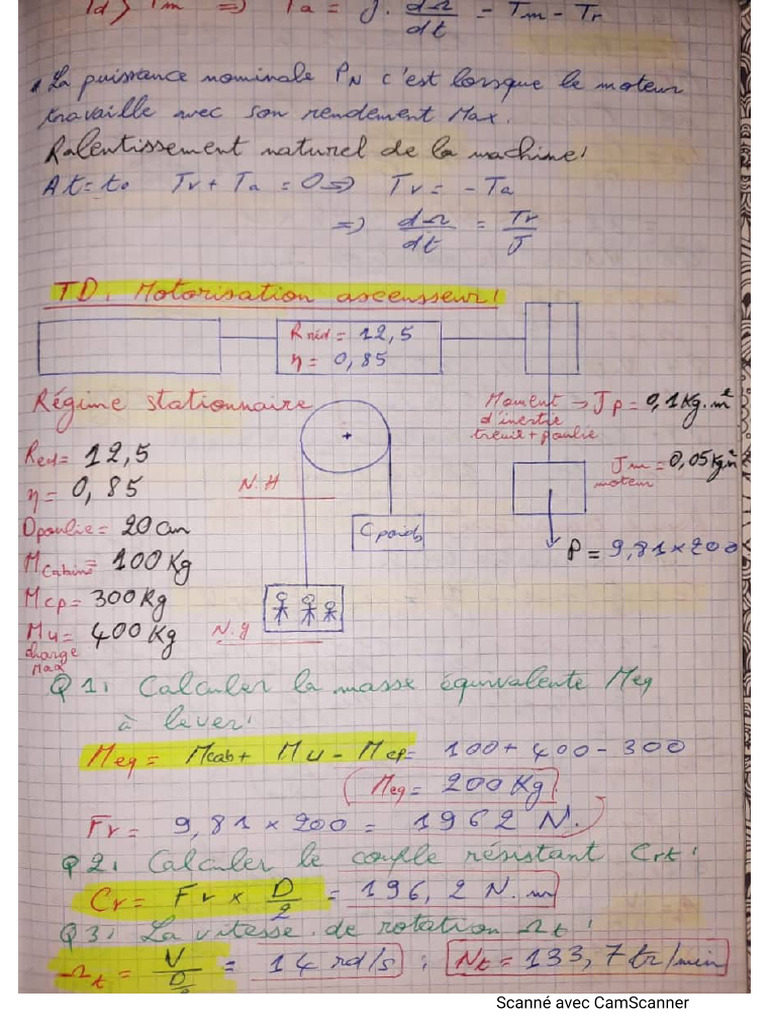 Td > Tm => Ta = J. dΩ/dt = Tm - Tr
* La puissance nominale PN c'est lorsque le moteur
travaille avec son rendement Max.
Ralentissement naturel de la machine!
At = to Tr + Ta = 0 => Tr = - Ta
=> dΩ/dt = Tr/J
TD: Motorisation ascensseur!
Rréd = 12,5
η = 0,85
Régime stationnaire
Moment d'inertie treuil + poulie -> Jp = 0,1 Kg.m²
Red = 12,5
Jm = 0,05 Kg.m²
moteur
η = 0,85
N.H
Dpoulie = 20 cm
C poids
P = 9,81 x 200
MCabine = 100 Kg
Mcp = 300 Kg
Mu = 400 Kg
charge Max
N.g
Q1: Calculer la masse équivalente Meq
à lever!
Meq = Mcab + Mu - Mcp = 100 + 400 - 300
Meq = 200 Kg
Fr = 9,81 x 200 = 1962 N.
Q2: Calculer le couple résistant Crt!
Cr = Fr x D/2 = 196,2 N.m
Q3: La vitesse de rotation Ωt!
Ωt = V/D/2 = 14 rd/s ; Nt = 133,7 tr/min
Scanné avec CamScanner